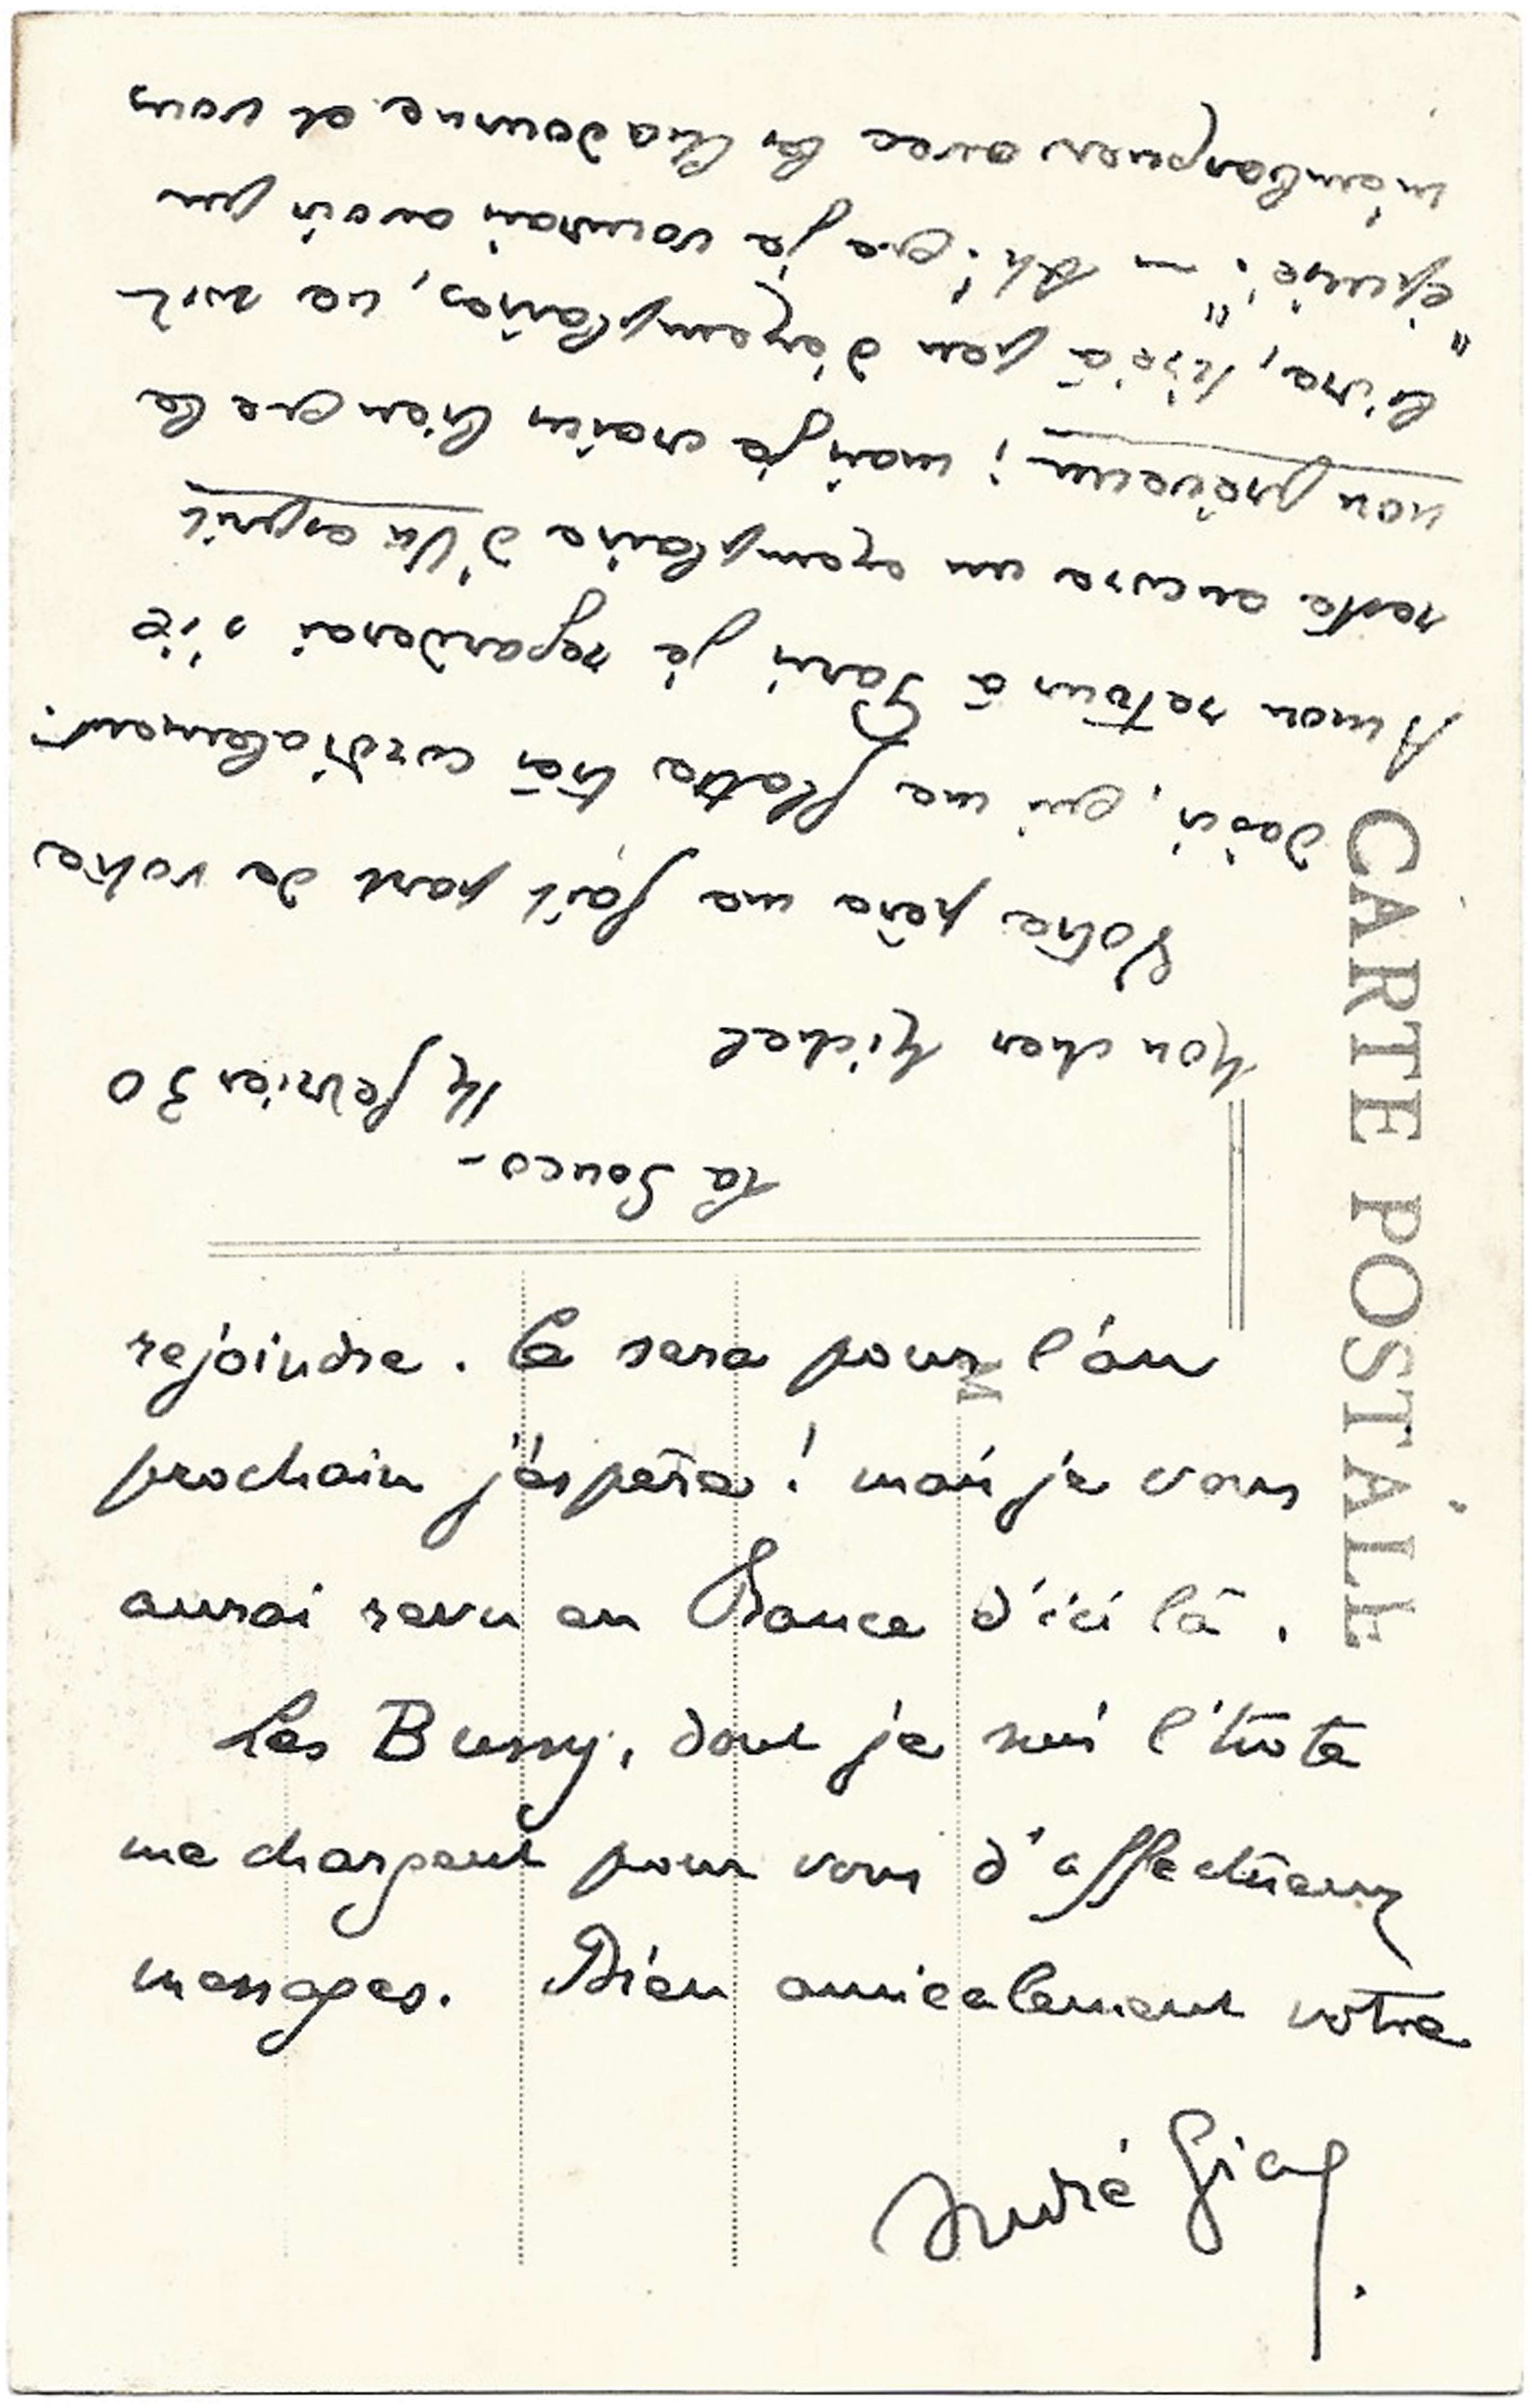 CARTE POSTALE
La Souco –
14 février 30
Mon cher Michel
Votre père me fait part de votre
désir, qui me flatte très cordialement.
A mon retour à Paris je regarderai s'il
reste encore un exemplaire d'Un esprit
non prévenu ; mais je crains bien que le
livre, tiré à peu d'exemplaires, ne soit
"épuisé". – Ah ! que je voudrais avoir pu
m'embarquer avec les Chadourne et vous
rejoindre. Ce sera pour l'an
M
prochain j'espère ! mais je vous
aurai revu en France d'ici là.
Les Bussy, dont je suis l'hôte
me chargent pour vous d'affectueux
messages. Bien amicalement votre
André Gide.